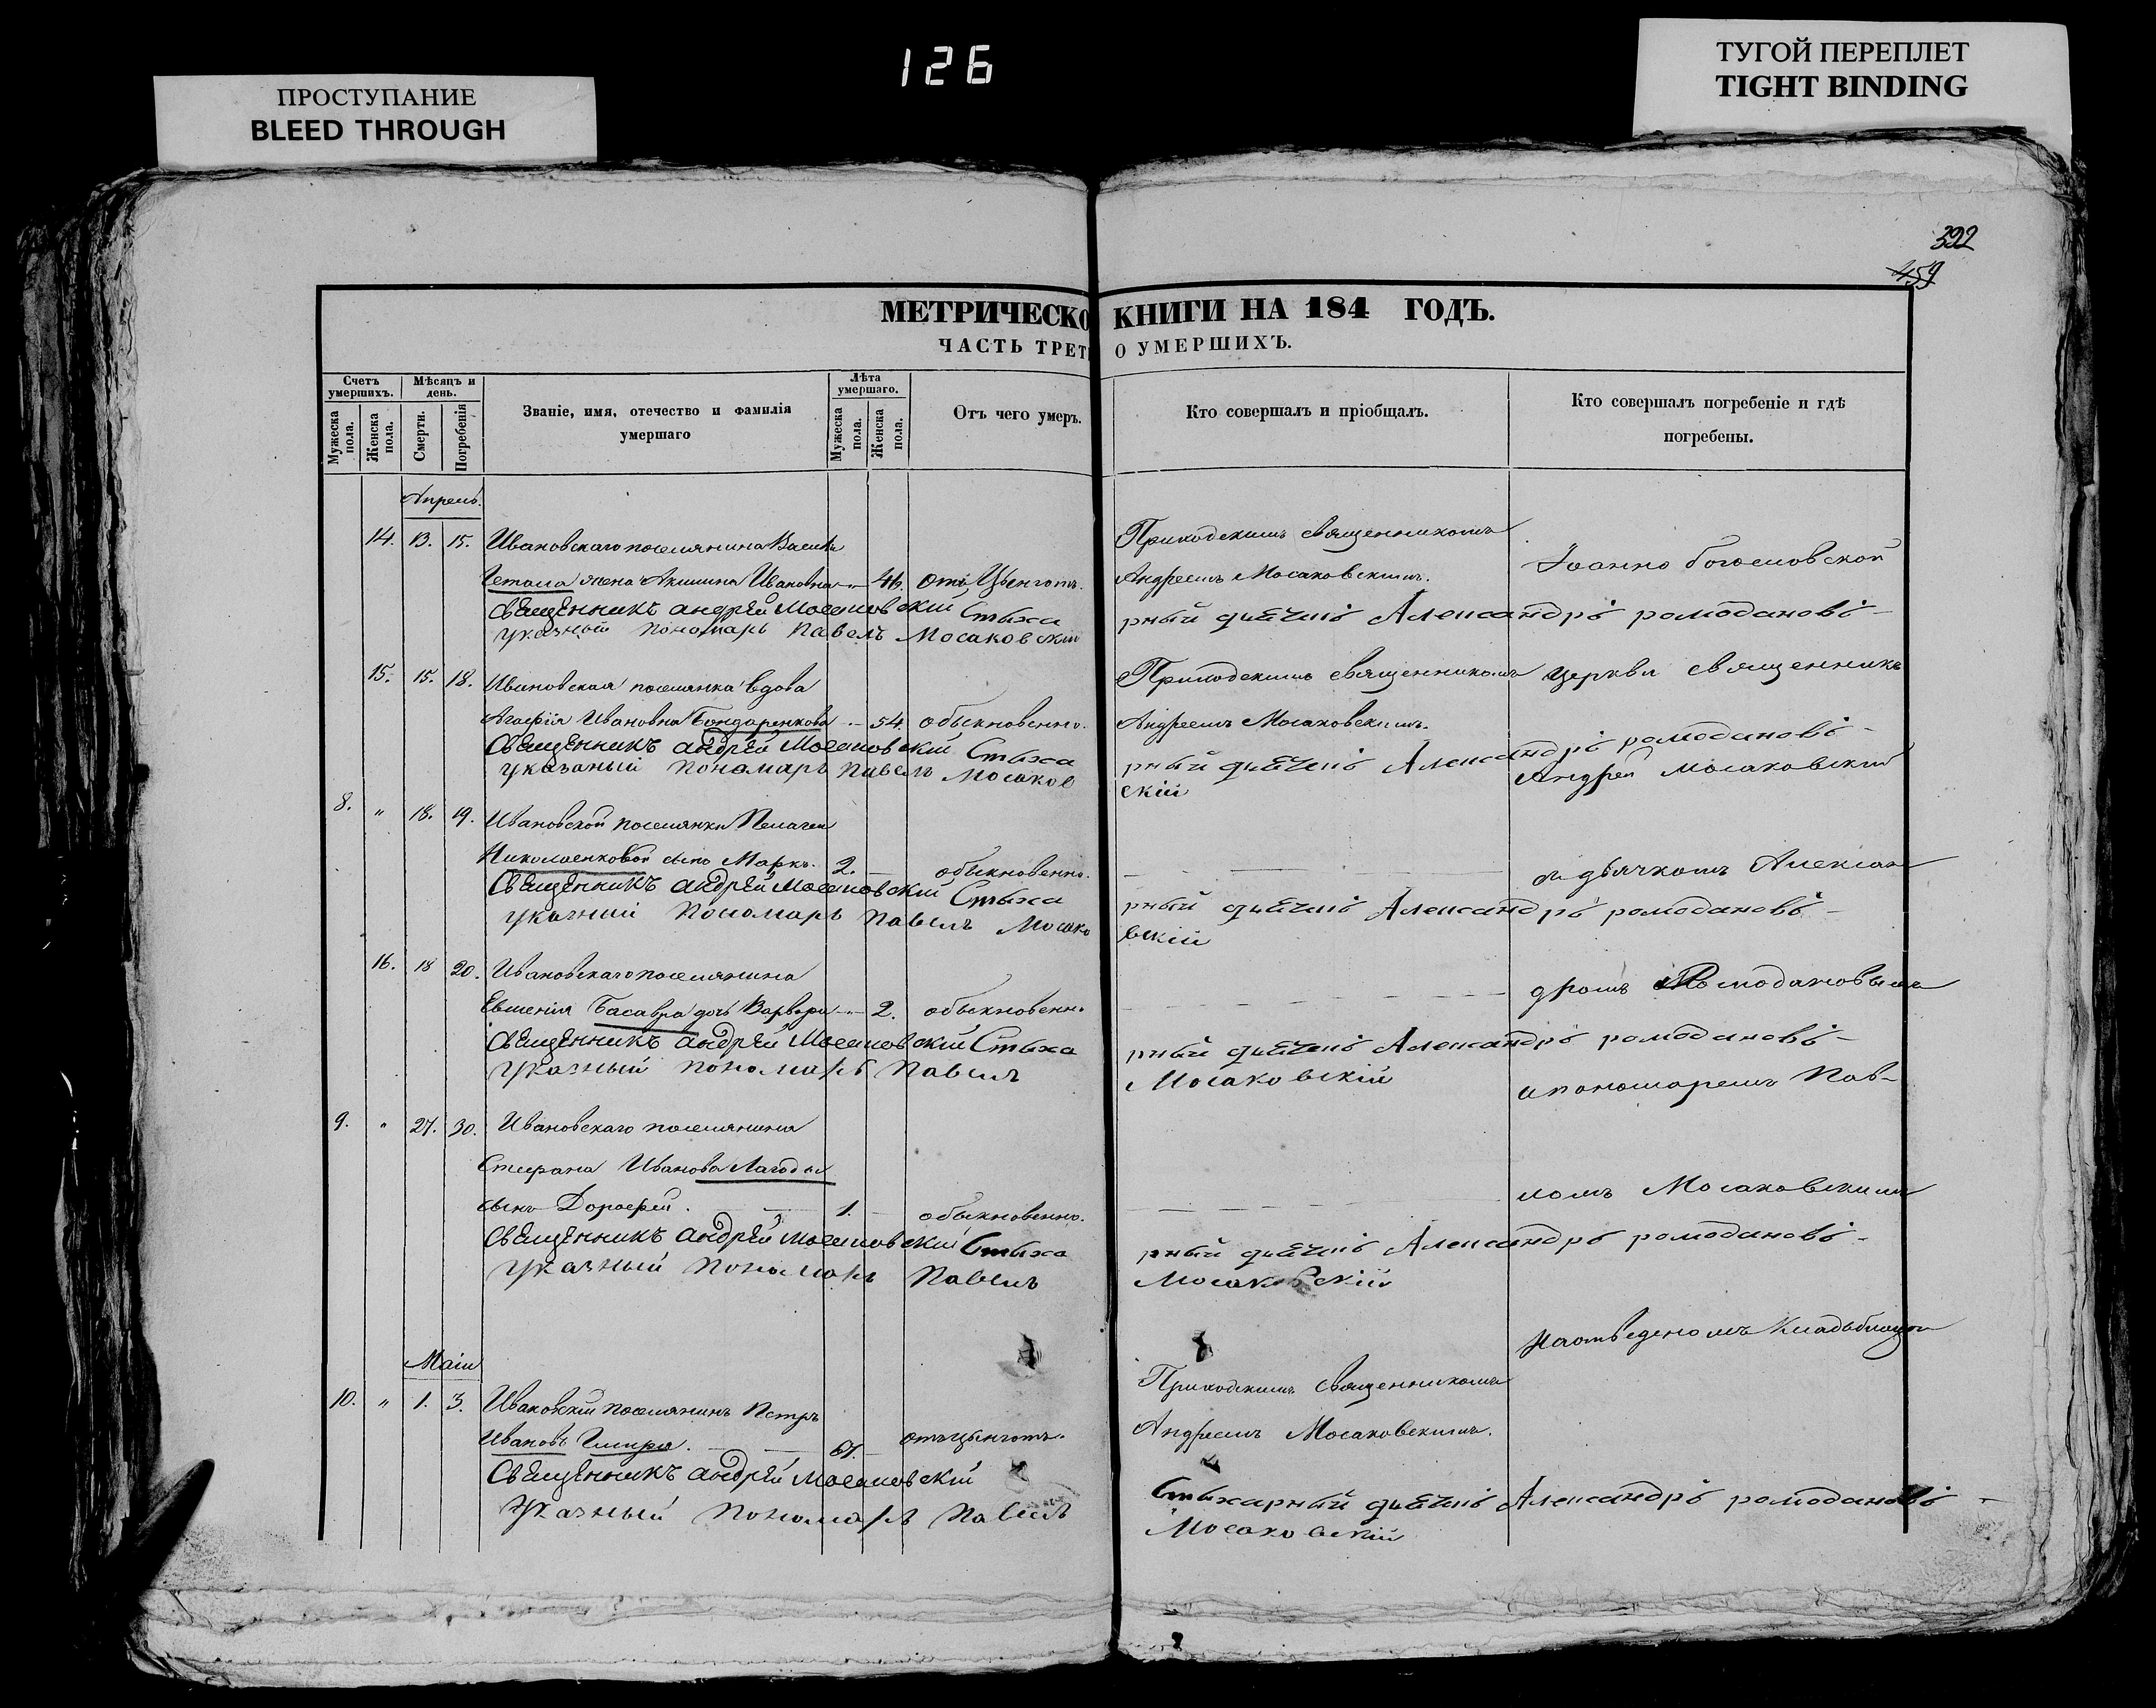 126
ПРОСТУПАНИЕ
BLEED THROUGH
ТУГОЙ ПЕРЕПЛЕТ
TIGHT BINDING
322
459
МЕТРИЧЕСКО КНИГИ НА 184 ГОДЪ.
ЧАСТЬ ТРЕТ О УМЕРШИХЪ.
Счетъ умершихъ.
Мужеска пола.
Женска пола.
Мѣсяцъ и день.
Смерти.
Погребенія
Званіе, имя, отечество и фамилія умершаго
Лѣта умершаго.
Мужеска пола.
Женска пола.
Отъ чего умеръ.
Кто совершалъ и пріобщалъ.
Кто совершалъ погребеніе и гдѣ погребены.
Апрель.
14. 13. 15. Ивановскаго поселянина Приходскимъ священникомъ
жена Ивановна 46. отъ Цынготъ. Андреемъ Мосаковскимъ. Іоанно богословской
Священникъ андрей Мосаковскій Стиха рный дьячекъ Александръ ромодановъ
указный пономарь Павелъ Мосаковскій
15. 15. 18. Ивановская поселянка вдова Приходскимъ священникомъ церкви священникъ
Агафія Ивановна Бондаренкова 54. обыкновенно. Андреемъ Мосаковскимъ.
Священникъ андрей Мосаковскій Стиха рный дьячекъ Александръ ромодановъ
указаный пономарь павелъ Мосаков скій Андрей Мосаковский
8. " 18. 19. Ивановской поселянки Пелагеи
Николаенковой сынъ Маркъ. 2. обыкновенно. съ дьячкомъ Алексан
Священникъ андрей Мосаковскій Стиха рный дьячекъ Александръ ромодановъ
указный Пономарь Павелъ Мосако вскій
16. 18 20. Ивановскаго поселянина дромъ Ромодановымъ
Евменія Басавра дочь Варвара 2. обыкновенно
Священникъ андрей Мосаковскій Стиха рный дьячекъ Александръ ромодановъ
Указный пономарь Павелъ Мосаковскій и пономаремъ Пав-
9. " 27. 30. Ивановскаго поселянина
Стефана Иванова Лагоды ломъ Мосаковскимъ
сынъ Дорофей. 1. обыкновенно.
Священникъ андрей Мосаковскій Стиха рный дьячекъ Александръ ромодановъ
Указный Пономарь Павелъ Мосаковскій
на отведеномъ кладбищѣ
Маія
10. " 1. 3. Ивановскій поселянинъ Петръ Приходскимъ священникомъ
Ивановъ 67. отъ цынготъ. Андреемъ Мосаковскимъ.
Священникъ андрей Мосаковскій Стихарный дьячекъ Александръ ромодановъ
Указный Пономарь Павелъ Мосаковскій